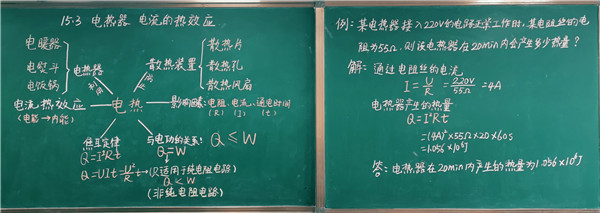 15.3 电热器 电流的热效应
电暖器
电熨斗
电饭锅
电热器
利用
散热装置
防治
散热片
散热孔
散热风扇
电流热效应
(电能→内能)
电热
影响因素:电阻、电流、通电时间
(R) (I) (t)
焦耳定律
Q=I²Rt
Q=UIt=U²/R t→(只适用于纯电阻电路)
与电功的关系:Q≤W
Q=W
Q<W
(非纯电阻电路)
例:某电热器接入220V的电路正常工作时,某电阻丝的电
阻为55Ω.则该电热器在20min内会产生多少热量?
解:通过电阻丝的电流
I=U/R=220V/55Ω=4A
电热器产生的热量
Q=I²Rt
=(4A)²×55Ω×20×60s
=1.056×10⁶J
答:电热器在20min内产生的热量为1.056×10⁶J